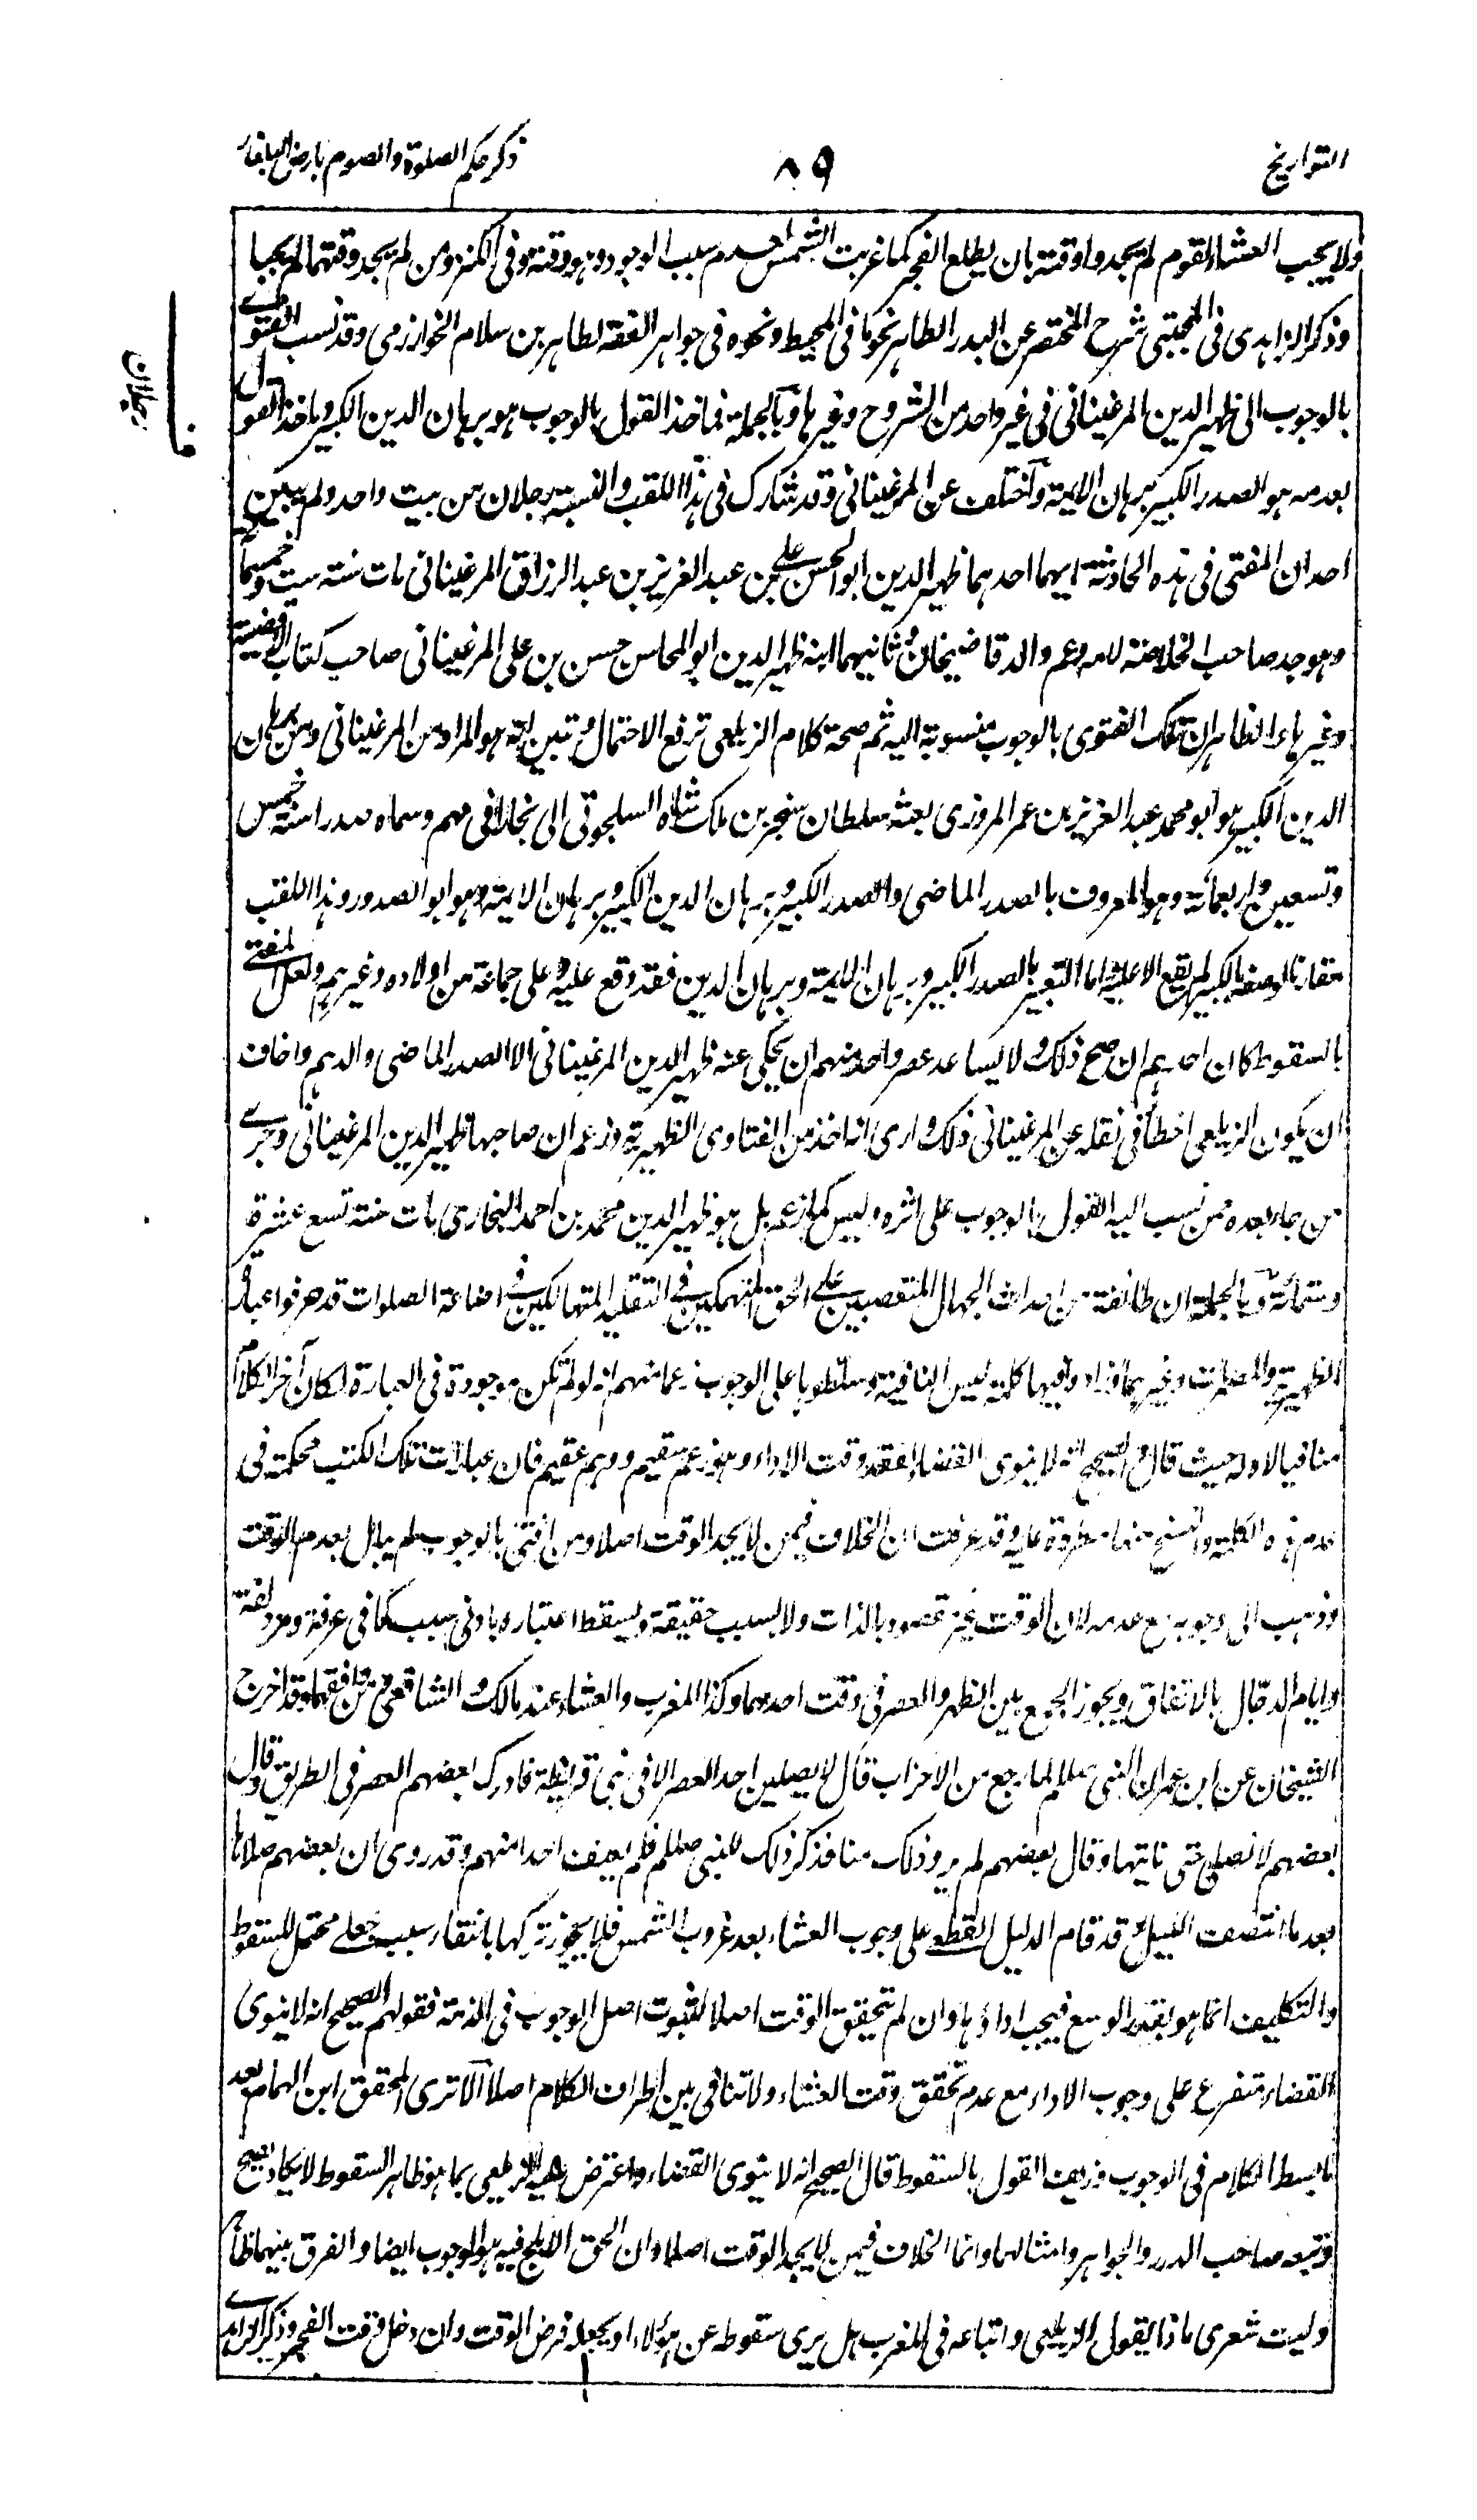 التواريخ ٨٩ ذكر حكم الصلوة والصوم بارض البلغار
ولا يجب العشاء لقوم لم يجدوا وقته بان يطلع الفجر كما غربت الشمس لعدم سبب الوجود وهو وقته وفى الكنز ومن لم يجد وقتهما لم يجبا
وذكر الزاهدى فى المجتبى شرح المختصر عن البدر الطاهر نحو ما فى المحيط ونحوه فى جواهر الفقه لطاهر بن سلام الخوارزمى وقد نسب الفتوى
بالوجوب الى ظهير الدين المرغينانى فى غير واحد من الشروح وغيرها وبالجملة فماخذ القول بالوجوب هو برهان الدين الكبير وماخذ القول
بعدمه هو الصدر الكبير برهان الايمة وآختلف عن المرغينانى وقد شارك فى هذا اللقب والنسبة رجلان من بيت واحد ولم يبين
احد ان المفتى فى هذه الحادثة ايهما احدهما ظهير الدين ابو الحسن على بن عبد العزيز بن عبد الرزاق المرغينانى مات سنة ست وخمسمائة
وهو جد صاحب الخلاصة لامه وعم والد قاضيخان وثانيهما ابنه ظهير الدين ابو المحاسن حسن بن على المرغينانى صاحب كتاب الاقضية
وغيرها والظاهر ان تلك الفتوى بالوجوب منسوبة اليه ثم صحة كلام الزيلعى ترفع الاحتمال وتبين انه هو المراد من المرغينانى ومن برهان
الدين الكبير هو ابو محمد عبد العزيز بن عمر المروزى بعثه سلطان سنجر بن ملك شاه السلجوقى الى بخارا فى مهم وسماه صدرا سنة خمس
وتسعين واربعمائة وهو المعروف بالصدر الماضى والصدر الكبير وبرهان الدين الكبير وبرهان الايمة وهو ابو الصدور وهذا اللقب
مقارنا لوصفه بالكبير لم يقع الا عليه اما التعبير بالصدر الكبير وبرهان الايمة وبرهان الدين فقد وقع عليه وعلى جماعة من اولاده وغيرهم ولعل المفتى
بالسقوط كان احدهم ان صح ذلك ولا يساعد عصر واحد منهم ان يحكى عنه ظهير الدين المرغينانى الا الصدر الماضى والدهم واخاف
ان يكون الزيلعى اخطأ فى نقله عن المرغينانى ذلك وارى انه اخذ من الفتاوى الظهيرية وزعم ان صاحبها ظهير الدين المرغينانى وجرى
من جاء بعده ممن نسب اليه القول بالوجوب على اثره وليس كما زعم بل هو ظهير الدين محمد بن احمد البخارى مات سنة تسع عشرة
وستمائة وبالجملة ان طائفة من احداث الجهال المتعصبين على الحق المنهمكين فى التقليد المتهالكين فى اضاعة الصلوات قد حرفوا عبارة
الظهيرية والمضمرات وغيرهما فزادوا فيها كلمة ليس النافية وسلطوها على الوجوب زعما منهم انه لو لم تكن موجودة فى العبارة لكان آخر الكلام
منافيا لاوله حيث قال والصحيح انه لا ينوى القضاء لفقد وقت الاداء وهو زعم سقيم ووهم عقيم فان عبارات تلك الكتب محكمة فى
عدم هذه الكلمة والنسخ عنها مطبقة عليه وقد عرفت ان الخلاف فيمن لا يجد الوقت اصلا ومن افتى بالوجوب لم يبال بعدم الوقت
وذهب الى وجوبه مع عدمه لان الوقت غير مقصود بالذات ولا بسبب حقيقة ويسقط اعتباره بادنى سبب كما فى عرفة ومزدلفة
وايام الدجال بالاتفاق ويجوز الجمع بين الظهر والعصر فى وقت احدهما وكذا المغرب والعشاء عند مالك والشافعى ومن وافقهما وقد اخرج
الشيخان عن ابن عمر ان النبى صللم لما رجع من الاحزاب قال لا يصلين احد العصر الا فى بنى قريظة فادرك بعضهم العصر فى الطريق وقال
بعضهم لا نصلى حتى ناتيها وقال بعضهم لم يرد ذلك منا فذكر ذلك للنبى صللم فلم يعنف احدا منهم وقد روى ان بعضهم صلاها
بعد ما انتصف الليل وقد قام الدليل القطعى على وجوب العشاء بعد غروب الشمس فلا يجوز تركها بانتفاء سبب جعلى محتمل للسقوط
والتكليف انما هو بقدر الوسع فيجب اداؤها وان لم يتحقق الوقت اصلا لثبوت اصل الوجوب فى الذمة فقولهم الصحيح انه لا ينوى
القضاء متفرع على وجوب الاداء مع عدم تحقق وقت العشاء ولا تنافى بين اطراف الكلام اصلا الا ترى المحقق ابن الهمام بعد
ما بسط الكلام فى الوجوب وزيف القول بالسقوط قال الصحيح انه لا ينوى القضاء واعترض عليه الزيلعى بما هو ظاهر السقوط لا يكاد يصح
وتبعه صاحب الدرر والجواهر وامثالهما وانما الخلاف فيمن لا يجد الوقت اصلا وان الحق الابلج فيه هو الوجوب ايضا والفرق بينهما ظاهر
وليت شعرى ماذا يقول الزيلعى واتباعه فى المغرب هل يرى سقوطه عن هؤلاء او يجعله فرض الوقت وان دخل وقت الفجر وذكر الزاهدى